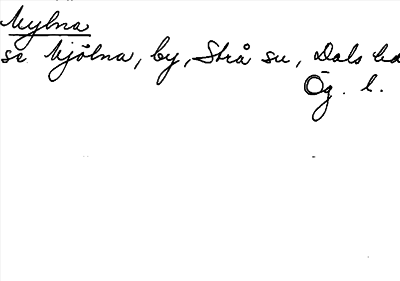 Mylna
se Mjölna, by, Strå sn, Dals hd
Ög. l.